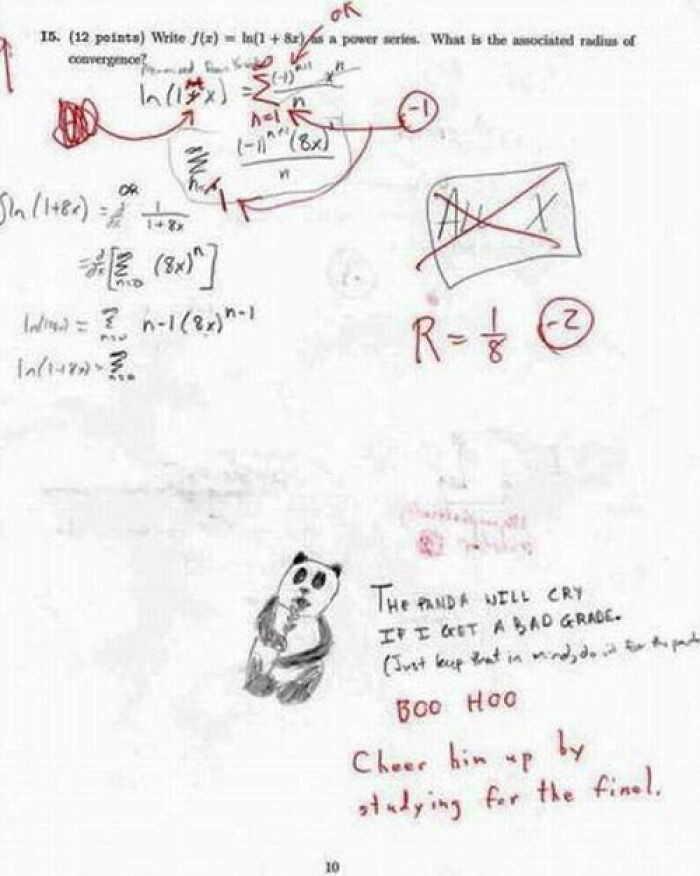 OK
15. (12 points) Write f(x) = ln(1 + 8x) as a power series. What is the associated radius of
convergence?
ln(1+x) = ∑ n=1 ∞ (-1)^{n+1} x^n / n
-1
∑ n=1 (-1)^{n+1} (8x) / n
OR
ln(1+8x) = d/dx 1/(1+8x)
= d/dx [∑ n=0 (8x)^n]
= ∑ n=0 n-1(8x)^{n-1}
ln(1+8x) = ∑ n=0
All X
R = 1/8 -2
THE PANDA WILL CRY
IF I GET A BAD GRADE.
(Just keep that in mind, do it for the panda
BOO HOO
Cheer him up by
studying for the final.
10